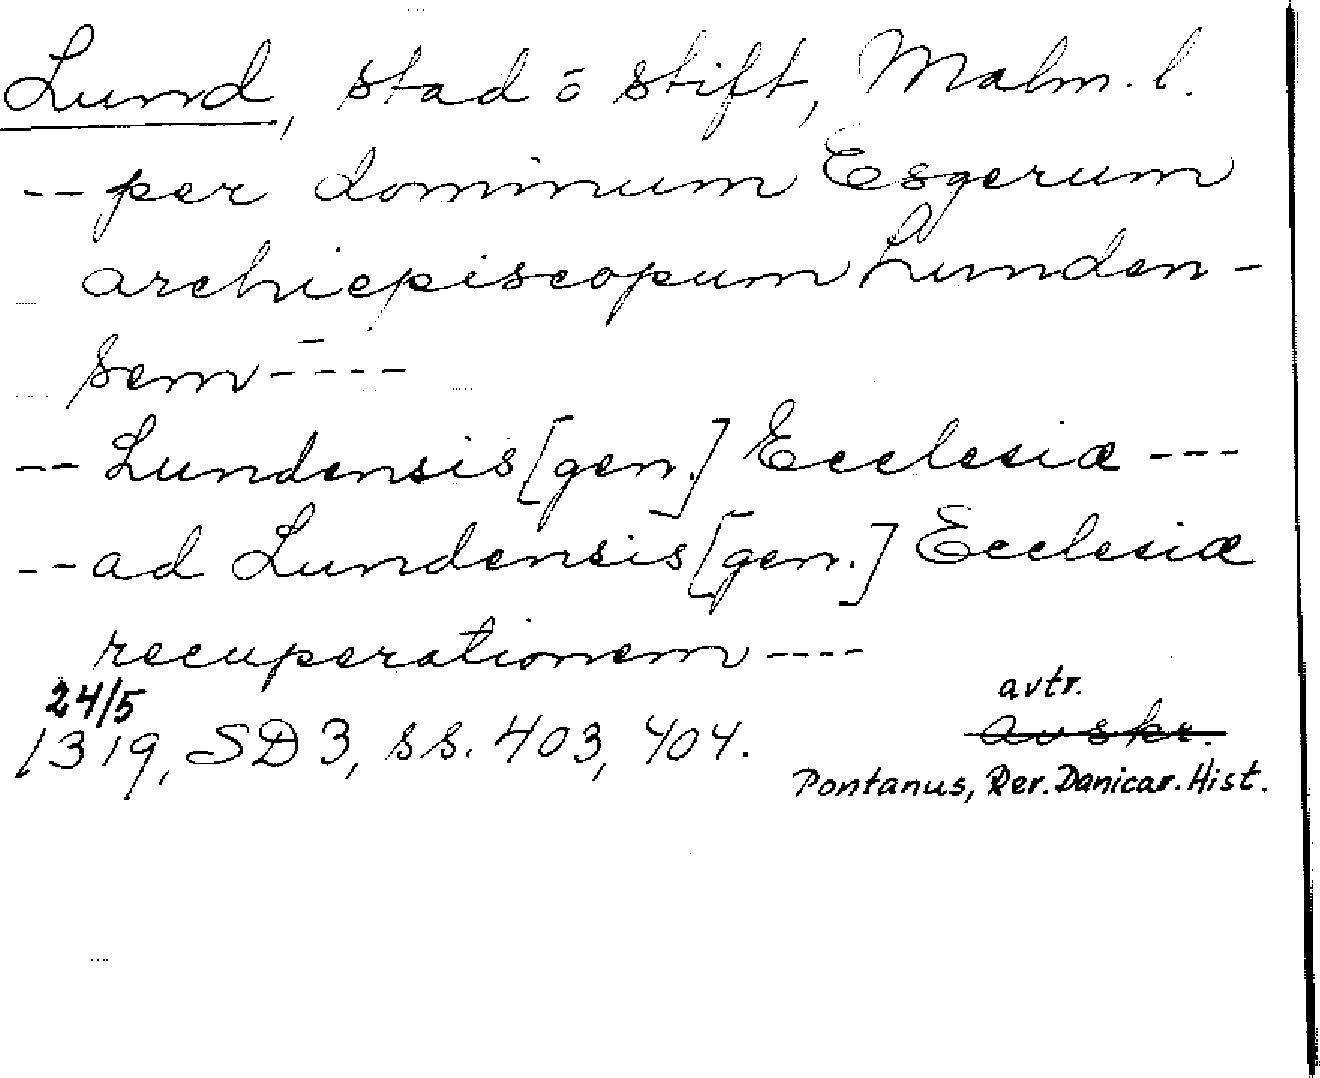 Lund, stad o stift, Malm. l.
-- per dominum Esgerum
archiepiscopum Lunden-
sem ----
-- Lundensis [gen.] Ecclesiæ ---
-- ad Lundensis [gen.] Ecclesiæ
recuperationem ----
24/5
1319, SD 3, ss. 403, 404.
avtr.
avskr.
Pontanus, Rer. Danicar. Hist.